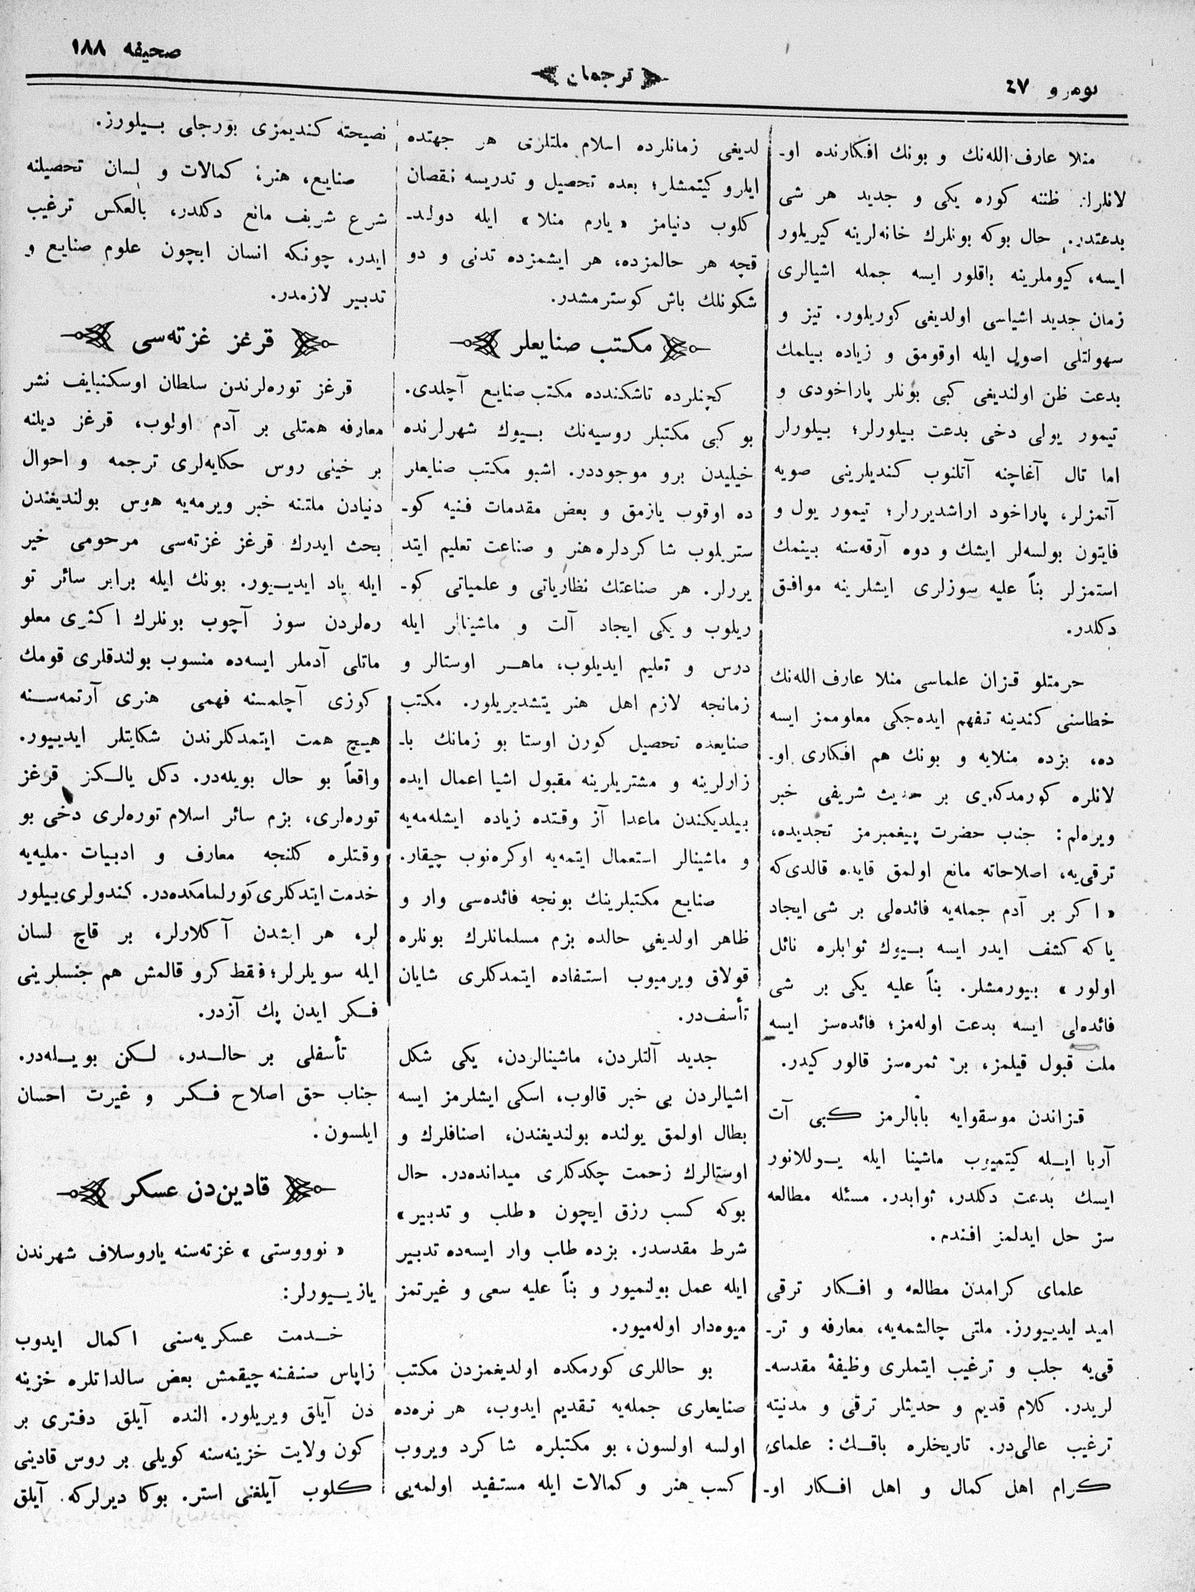 نومرو ٤٧
ترجمان
صحیفه ١٨٨
منلا عارف الله‌نك و بونك افكارنده او-
لانلرك ظننه كوره یكی و جدید هر شی
بدعتدر. حال بوكه بونلرك خانه‌لرینه كیریلور
ایسه، كیوملرینه باقلور ایسه جمله اشیالری
زمان جدید اشیاسی اولدیغی كوریلور. تیز و
سهولتلی اصول ایله اوقومق و زیاده بیلمك
بدعت ظن اولندیغی كبی بونلر پاراخودی و
تیمور یولی دخی بدعت بیلورلر؛ بیلورلر
اما تال آغاچنه آتلنوب كندیلرینی صویه
آتمزلر، پاراخود اراشدیررلر؛ تیمور یول و
فایتون بولسه‌لر ایشك و دوه آرقه‌سنه بینمك
استمزلر بناً علیه سوزلری ایشلرینه موافق
دكلدر.
حرمتلو قزان علماسی منلا عارف الله‌نك
خطاسنی كندینه تفهم ایده‌جكی معلوممز ایسه
ده، بزده منلایه و بونك هم افكاری او-
لانلره كورمدكلری بر حدیث شریفی خبر
ویره‌لم: جناب حضرت پیغمبرمز تجدیده،
ترقی‌یه، اصلاحاته مانع اولمق قایده قالدی‌كه
«اكر بر آدم جمله‌یه فائده‌لی بر شی ایجاد
یا‌كه كشف ایدر ایسه بیوك ثوابلره نائل
اولور» بیورمشلر. بناً علیه یكی بر شی
فائده‌لی ایسه بدعت اوله‌مز؛ فائده‌سز ایسه
ملت قبول قیلمز، بر ثمره‌سز قالور كیدر.
قزاندن موسقوایه بابالرمز كبی آت
آربا ایله كیتمیوب ماشینا ایله یوللانور
ایسك بدعت دكلدر، ثوابدر. مسئله مطالعه
سز حل ایدلمز افندم.
علمای كرامدن مطالعه و افكار ترقی
امید ایدییورز. ملتی چالشمه‌یه، معارفه و تر-
قی‌یه جلب و ترغیب ایتملری وظیفۀ مقدسه-
لریدر. كلام قدیم و حدیثلر ترقی و مدنیته
ترغیب عالی‌در. تاریخلره باقك: علمای
كرام اهل كمال و اهل افكار او-
لدیغی زمانلرده اسلام ملتلری هر جهتده
ایلرو كیتمشلر؛ بعده تحصیل و تدریسه نقصان
كلوب دنیامز «یارم منلا» ایله دولد-
قچه هر حالمزده، هر ایشمزده تدنی و دو
شكونلك باش كوسترمشدر.
مكتب صنایعلر
كچنلرده تاشكندده مكتب صنایع آچلدی.
بو كبی مكتبلر روسیه‌نك بیوك شهرلرنده
خیلیدن برو موجوددر. اشبو مكتب صنایعلر
ده اوقوب یازمق و بعض مقدمات فنیه كو-
ستریلوب شاكردلره هنر و صناعت تعلیم ایتد
یررلر. هر صناعتك نظاریاتی و علمیاتی كو-
ریلوب و یكی ایجاد آلت و ماشینالر ایله
درس و تعلیم ایدیلوب، ماهر اوستالر و
زمانجه لازم اهل هنر یتشدیریلور. مكتب
صنایعده تحصیل كورن اوستا بو زمانك با-
زارلرینه و مشتریلرینه مقبول اشیا اعمال ایده
بیلدیكندن ماعدا آز وقتده زیاده ایشله‌مه‌یه
و ماشینالر استعمال ایتمه‌یه اوكره‌نوب چیقار.
صنایع مكتبلرینك بونجه فائده‌سی وار و
ظاهر اولدیغی حالده بزم مسلمانلرك بونلره
قولاق ویرمیوب استفاده ایتمدكلری شایان
تأسف‌در.
جدید آلتلردن، ماشینالردن، یكی شكل
اشیالردن بی خبر قالوب، اسكی ایشلرمز ایسه
بطال اولمق یولنده بولندیغندن، اصنافلرك و
اوستالرك زحمت چكدكلری میدانده‌در. حال
بوكه كسب رزق ایچون «طلب و تدبیر»
شرط مقدسدر. بزده طلب وار ایسه‌ده تدبیر
ایله عمل بولنمیور و بناً علیه سعی و غیرتمز
میوه‌دار اوله‌میور.
بو حاللری كورمكده اولدیغمزدن مكتب
صنایعاری جمله‌یه تقدیم ایدوب، هر نره‌ده
اولسه اولسون، بو مكتبلره شاكرد ویروب
كسب هنر و كمالات ایله مستفید اولمه‌یی
نصیحته كندیمزی بورجلی بیلورز.
صنایع، هنر، كمالات و لسان تحصیلنه
شرع شریف مانع دكلدر، بالعكس ترغیب
ایدر، چونكه انسان ایچون علوم صنایع و
تدبیر لازمدر.
قرغز غزته‌سی
قرغز توره‌لرندن سلطان اوسكنبایف نشر
معارفه همتلی بر آدم اولوب، قرغز دیلنه
بر خیلی روس حكایه‌لری ترجمه و احوال
دنیادن ملتنه خبر ویرمه‌یه هوس بولندیغندن
بحث ایدرك قرغز غزته‌سی مرحومی خیر
ایله یاد ایدییور. بونك ایله برابر سائر تو
ره‌لردن سوز آچوب بونلرك اكثری معلو
ماتلی آدملر ایسه‌ده منسوب بولندقلری قومك
كوزی آچلمسنه فهمی هنری آرتمه‌سنه
هیچ همت ایتمدكلرندن شكایتلر ایدییور.
واقعاً بو حال بویله‌در. دكل یالكز قرغز
توره‌لری، بزم سائر اسلام توره‌لری دخی بو
وقتلره كلنجه معارف و ادبیات ملیه‌یه
خدمت ایتدكلری كورلمامكده‌در. كندولری بیلور
لر، هر ایشدن آكلارلر، بر قاچ لسان
ایله سویلرلر؛ فقط كرو قالمش هم جنسلرینی
فكر ایدن پك آزدر.
تأسفلی بر حالدر، لكن بویله‌در.
جناب حق اصلاح فكر و غیرت احسان
ایلسون.
قادین‌دن عسكر
«نووستی» غزته‌سنه یاروسلاف شهرندن
یازییورلر:
خدمت عسكریه‌سنی اكمال ایدوب
زاپاس صنفنه چیقمش بعض سالداتلره خزینه
دن آیلق ویریلور. النده آیلق دفتری بر
كون ولایت خزینه‌سنه كویلی بر روس قادینی
كلوب آیلغنی استر. بوكا دیرلركه آیلق